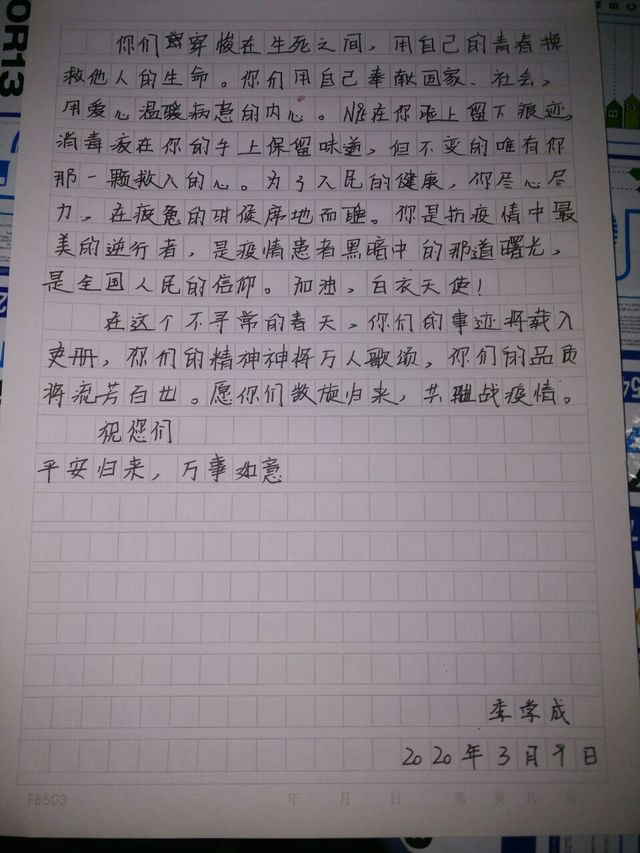 你们穿梭在生死之间，用自己的青春换
救他人的生命。你们用自己奉献国家、社会，
用爱心温暖病患的内心。N95在你脸上留下痕迹，
消毒液在你的手上保留味道，但不变的唯有你
那一颗救人的心。为了人民的健康，你尽心尽
力，在疲惫的时候席地而睡。你是抗疫情中最
美的逆行者，是疫情患者黑暗中的那道曙光，
是全国人民的信仰。加油，白衣天使！
在这个不寻常的春天，你们的事迹将载入
吏册，你们的精神神将万人歌颂，你们的品质
将流芳百世。愿你们敖旋归来，共战疫情。
祝您们
平安归来，万事如意
李学成
2020年3月9日
FB503
年 月 日 第 页 共 页
OR13